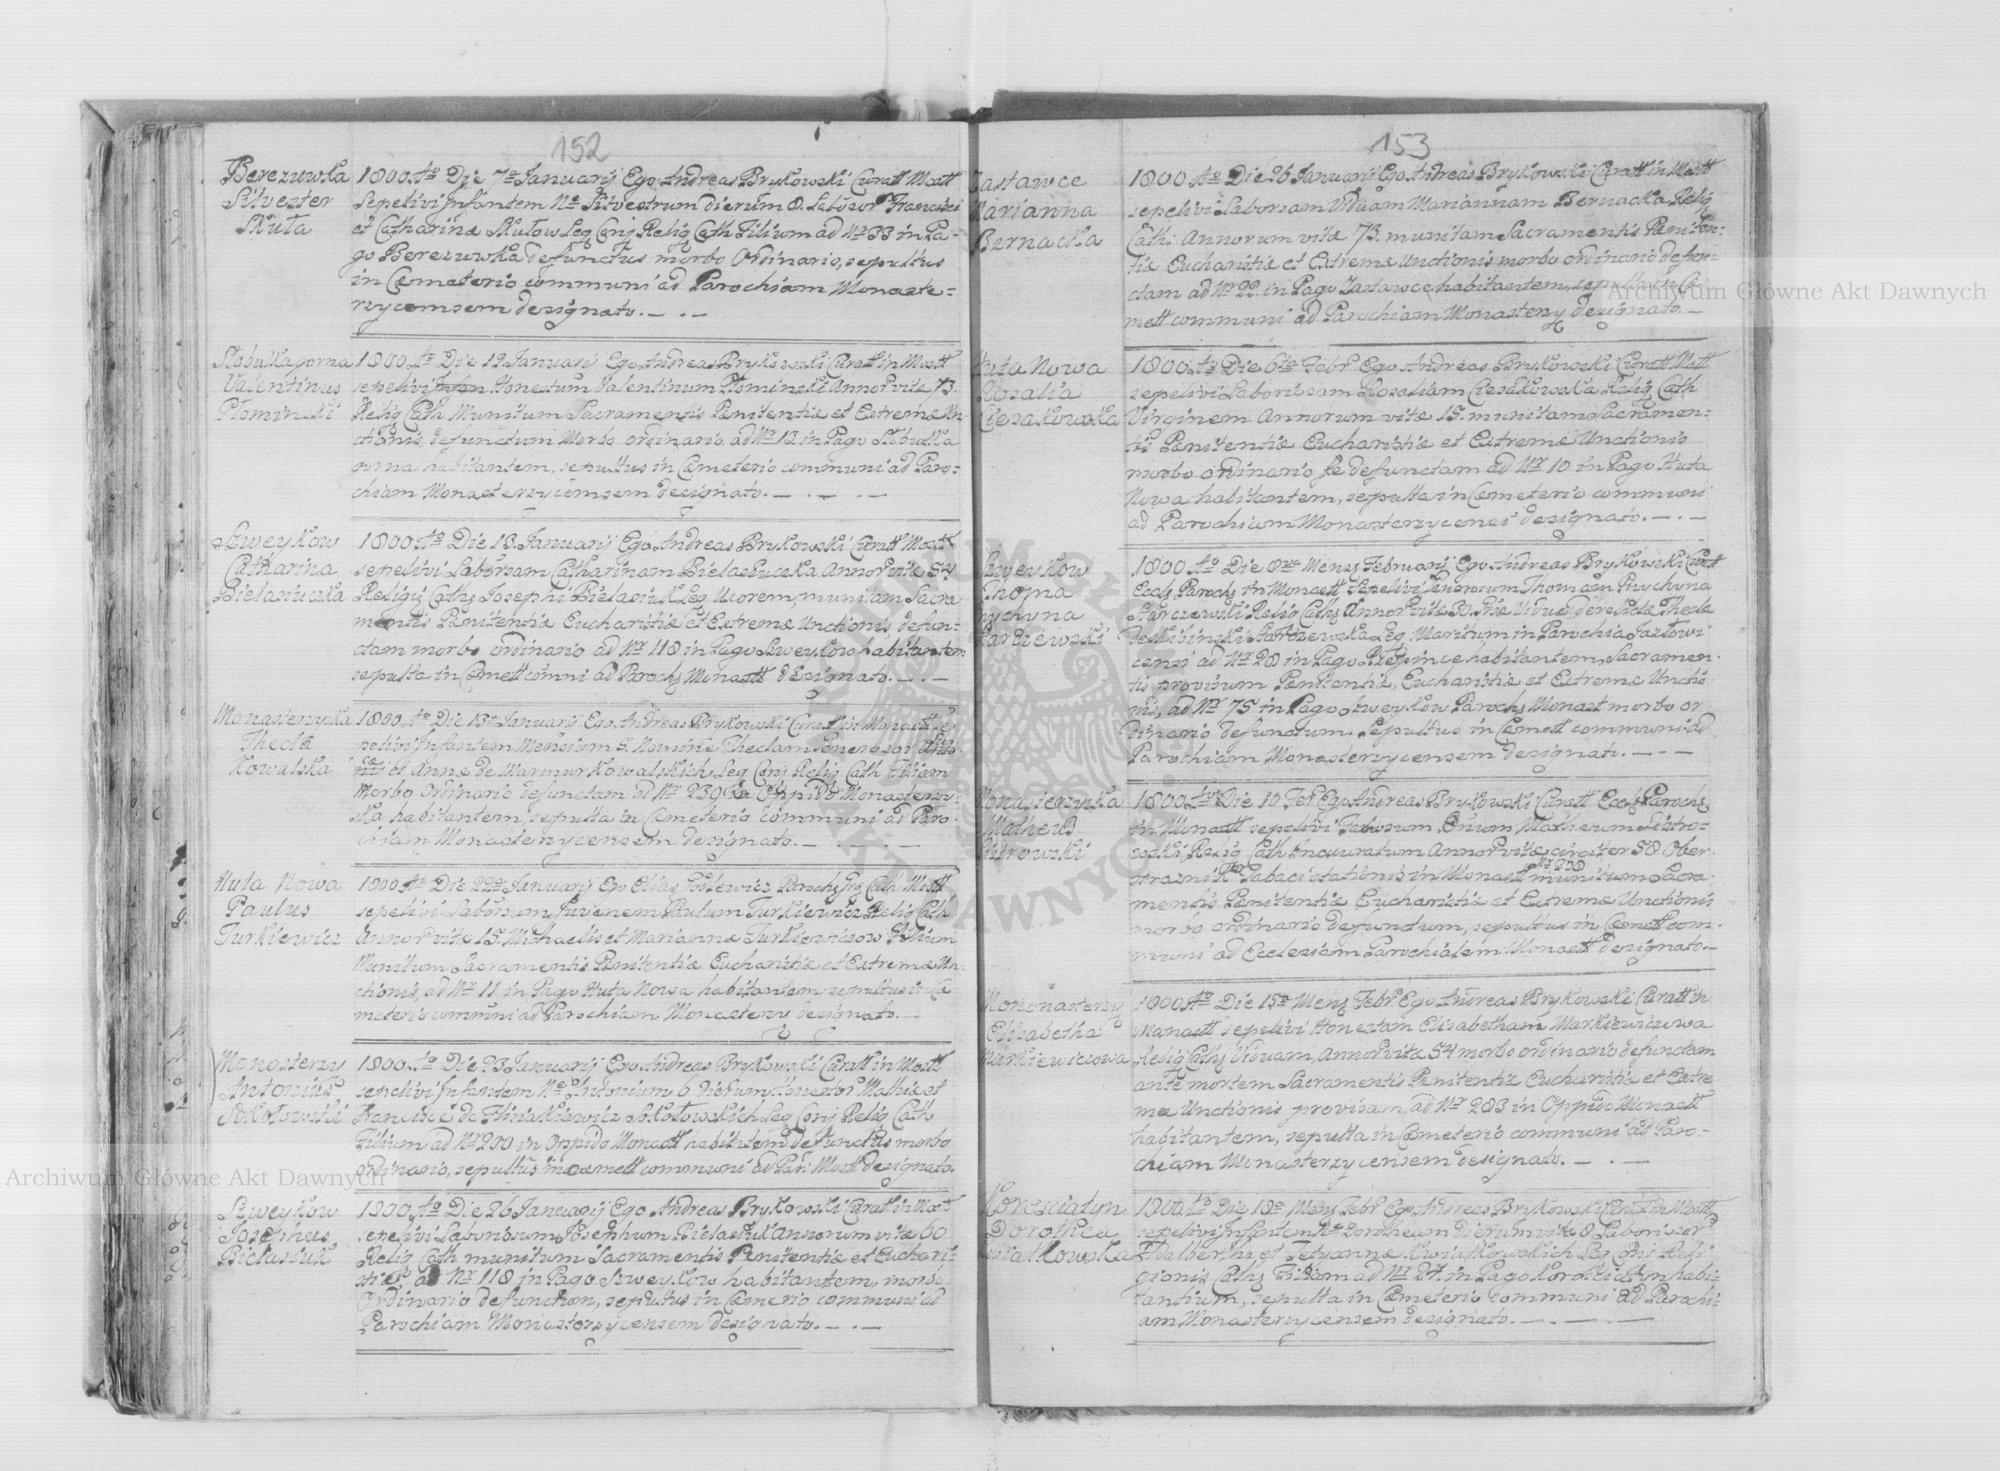 152
Berezuwka
Silvester
Skuła
1800 Ao Die 7a Januarij Ego Andreas Brykowski Curatt Mostt
sepelivi Infantem Ne Silvestrum dierum 8. Labiosor Francisci
et Catharinæ Skułow Leg Conj Relig Cath Filium ad Nr 33 in Pa-
go Berezuwka defunctus morbo Ordinario, sepultus
in Cæmeterio communi ad Parochiam Monaste=
rzycemsem designato. — . —
Słobutka gorna
Valentinus
Płominski
1800 Ao Die 12 Januarij Ego Andreas Brykowski Curatt in Mostt
sepelivi Honestum Valentinum Płominski Annor vitæ 73.
Relig Cath Munitum Sacramentis Pænitentiæ et Extremæ Un
ctionis, defunctum Morbo ordinario ad Nr 12 in Pago Słobutka
gorna habitantem, sepultus in Cæmeterio communi ad Paro=
chiam Monasterzycemsem designato. — . — —
Szweyków
Catharina
Bielasiuczka
1800 Ao Die 13. Januarij Ego Andreas Brykowski Curatt Mostt
sepelivi Laborsam Catharinam Bielasiuczka Annor vitæ 54
Religij Cathz Josephi Bielasiuk Leg Uxorem, munitam Sacra
mentis Pænitentiæ Eucharistiæ et Extremæ Unctionis, defun-
ctam morbo ordinario ad Nr 118 in Pago Szweyków habitantem
sepulta in Cæmett comni ad Parochz Monastt designato. — . —
Monasterzyska
Thecla
Kowalska
1800 Ao Die 13a Januarij Ego Andreas Brykowski Curatt in Monastt se
pelivi Infantem Mensium 5. Nomine Theclam Generosor
et Annæ de Marmur Kowalskich Leg Conj Relig Cath Filiam
Morbo ordinario defunctam ad Nr 230 in Oppido Monasterzy-
ska habitantem, sepulta in Cæmeterio communi ad Paro-
chiam Monasterzycensem designato. — . —
Huta Nowa
Paulus
Turkiewicz
1800 Ao Die 22a Januarij Ego Elias Parochz Cath Mostt
sepelivi Laborsum Juvenem Paulum Turkiewicz Relig Cath
Annor vitæ 15. Michaelis et Mariannæ Turkiewiczow Filium
Munitum Sacramentis Pænitentiæ Eucharistiæ et Extremæ Un-
ctionis, ad Nr 11 in Pago Huta Nowa habitantem sepultus in Cæ
meterio communi ad Parochiam Monasterzy designato. —
Monasterzy
Antonius
Sokołowski
1800 Ao Die 23 Januarij Ego Andreas Brykowski Curatt in Mostt
sepelivi Infantem Ne Antonium 6 Dierum, Honestor Mathiæ et
Franciscæ de Sokołowskich Leg Conj Relig Cath
Filium ad Nr 200 in Oppido Monastt habitantem defunctus morbo
ordinario, sepultus in Cæmett communi ad Par: Mostt designato.
Szweyków
Josephus
Bielasiuk
1800 Ao Die 26 Januarij Ego Andreas Brykowski Curatt in Mostt
sepelivi Laboriosum Josephum Bielasiuk Annorum vitæ 60
Relig Cath munitum Sacramentis Pænitentiæ et Euchari-
stiæ ad Nr 118 in Pago Szweyków habitantem, morbo
Ordinario defunctum, sepultus in Cæmerio communi ad
Parochiam Monasterzycensem designato. — . —
153
Zastawce
Marianna
Bernacka
1800 Ao Die 26 Januarij Ego Andreas Brykowski Curatt in Mostt
sepelivi Laborsam Viduam Mariannam Bernacka Relig
Cath: Annorum vitæ 73. munitam Sacramentis Pæniten-
tiæ Eucharistiæ et Extremæ Unctionis morbo ordinario defun-
ctam ad Nr 22. in Pago Zastawce habitantem, sepulta in Cæ
mett communi ad Parochiam Monasterzy designato. —
Huta Nowa
Rosalia
Ciesakowska
1800 Ao Die 6ta Febr Ego Andreas Brykowski Curatt Mostt
sepelivi Laboriosam Rosaliam Ciesakowska Relig Cath
Virginem Annorum vitæ 15. munitam Sacramen=
tis Pænitentiæ Eucharistiæ et Extremæ Unctionis
morbo ordinario defunctam ad Nr 10 in Pago Huta
Nowa habitantem, sepulta in Cæmeterio communi
ad Parochiam Monasterzycensi designato. — . —
Szweyków
Thoma
Prychyna
Starczewski
1800 Ao Die 8va Mensz Februarij Ego Andreas Brykowski Curatt
Eccls Parochz in Monastt sepelivi Generosum Thomam Prychyna
Starczewski Relig Cathz Annor vitæ 30. Piæ Viduæ derelictæ Theclæ
de Starczewska Leg Maritum in Parochia Jazłowi
censi ad Nr 28 in Pago Rzepince habitantem, Sacramen-
tis provisum Pænitentiæ, Eucharistiæ et Extremæ Uncti
nis, ad Nr 75 in Pago Szweyków Parochz Monast morbo or
dinario defunctum. Sepultus in Cæmett communi ad
Parochiam Monasterzycensem designato. — . —
Monasterzyska
Matheus
Sistrowski
1800 Ao Die 10 Feb Ego Andreas Brykowski Curatt Eccls Parochz
in Monastt sepelivi Dnum Matheum Sistro=
wski, Relig Cath Annor vitæ circiter 58 Ober
straznik Tabaci stationis in Monastt Nr 278 munitum Sacra-
mentis Pænitentiæ Eucharistiæ et Extremæ Unctionis
morbo ordinario defunctum, sepultus in Cæmett com-
muni ad Ecclesiam Parochialem Monastt designato. —
Monasterzy
Elisabetha
Markiewiczowa
1800 Ao Die 15a Mensz Febr Ego Andreas Brykowski Curatt in
Monastt sepelivi Honestam Elisabetham Markiewiczowa
Relig Cathz Viduam, Annor vitæ 54 morbo ordinario defunctam
ante mortem Sacramentis Pænitentiæ Eucharistiæ et Extre
mæ Unctionis provisam, ad Nr 283 in Oppido Monastt
habitantem, sepulta in Cæmeterio communi ad Paro-
chiam Monasterzycensem designato. — . —
Korosciatyn
Dorothea
Kwiatkowska
1800 Ao Die 18a Mensz Febr Ego Andreas Brykowski Curatt in Mostt
sepelivi Infantem Ne Dorotheam dierum vitæ 8 Laboriosor
Adalberti et Tetyannæ Kwiatkowskich Leg Conj Reli
gionis Cathz Filiam ad Nr 27. in Pago Korosciatyn habi-
tantium, sepulta in Cæmeterio communi ad Parochi-
am Monasterzycensem designato. — . — —
Archiwum Główne Akt Dawnych
Archiwum Główne Akt Dawnych